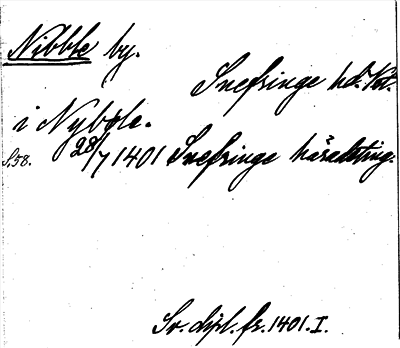 Nibble by.
Snefringe hd. Vstm.
i Nybble.
S. 58. 28/7 1401 Snefringe häradsting.
Sv. dipl. fr. 1401. I.